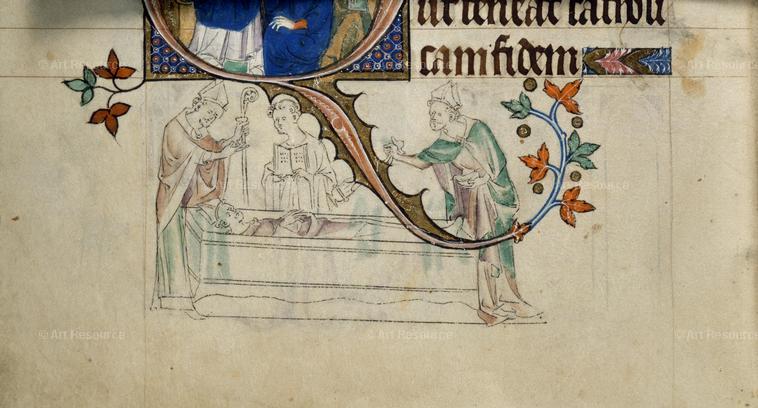 ut teneat catholi
cam fidem
© Art Resource
© Art Resource
© Art Resource
© Art Resource
© Art Resource
© Art Resource